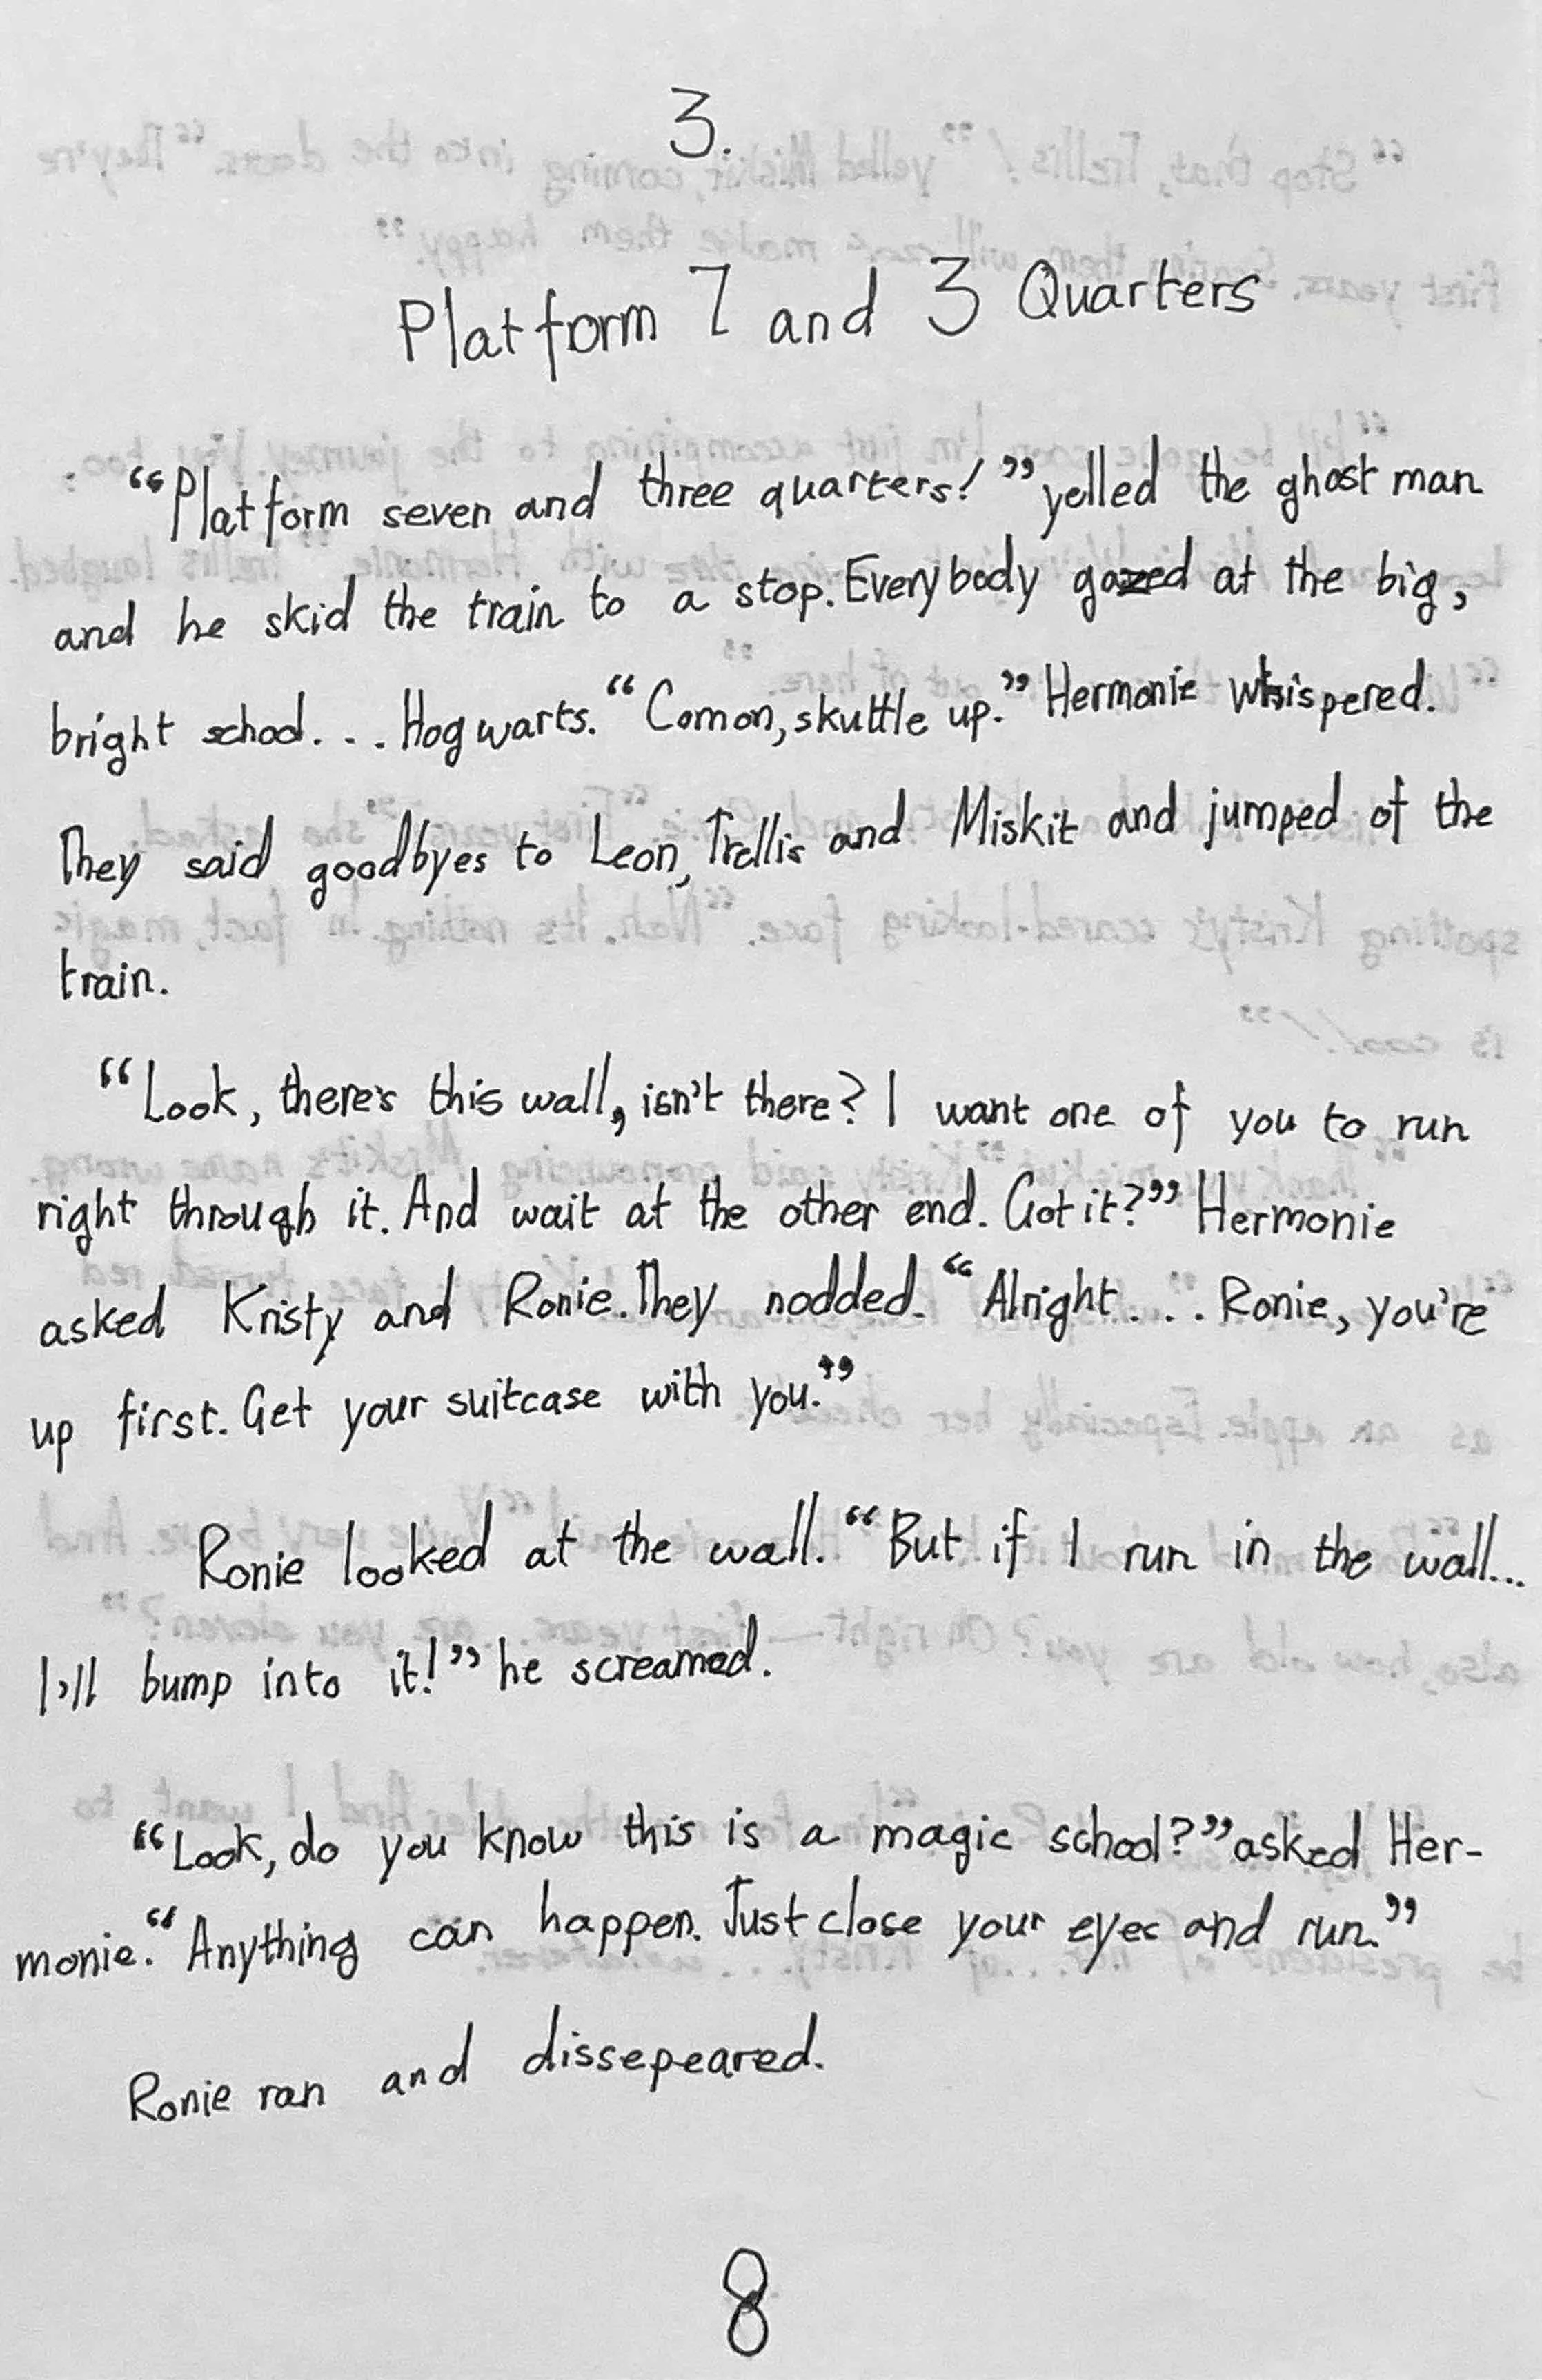 3.
Platform 7 and 3 Quarters
“Platform seven and three quarters!” yelled the ghost man
and he skid the train to a stop. Everybody gazed at the big,
bright school... Hogwarts. “Comon, skuttle up.” Hermonie whispered.
They said goodbyes to Leon, Trellis and Miskit and jumped of the
train.
“Look, there's this wall, isn't there? I want one of you to run
right through it. And wait at the other end. Got it?” Hermonie
asked Kristy and Ronie. They nodded. “Alright... Ronie, you're
up first. Get your suitcase with you.”
Ronie looked at the wall. “But if I run in the wall...
I'll bump into it!” he screamed.
“Look, do you know this is a magic school?” asked Her-
monie. “Anything can happen. Just close your eyes and run.”
Ronie ran and dissepeared.
8